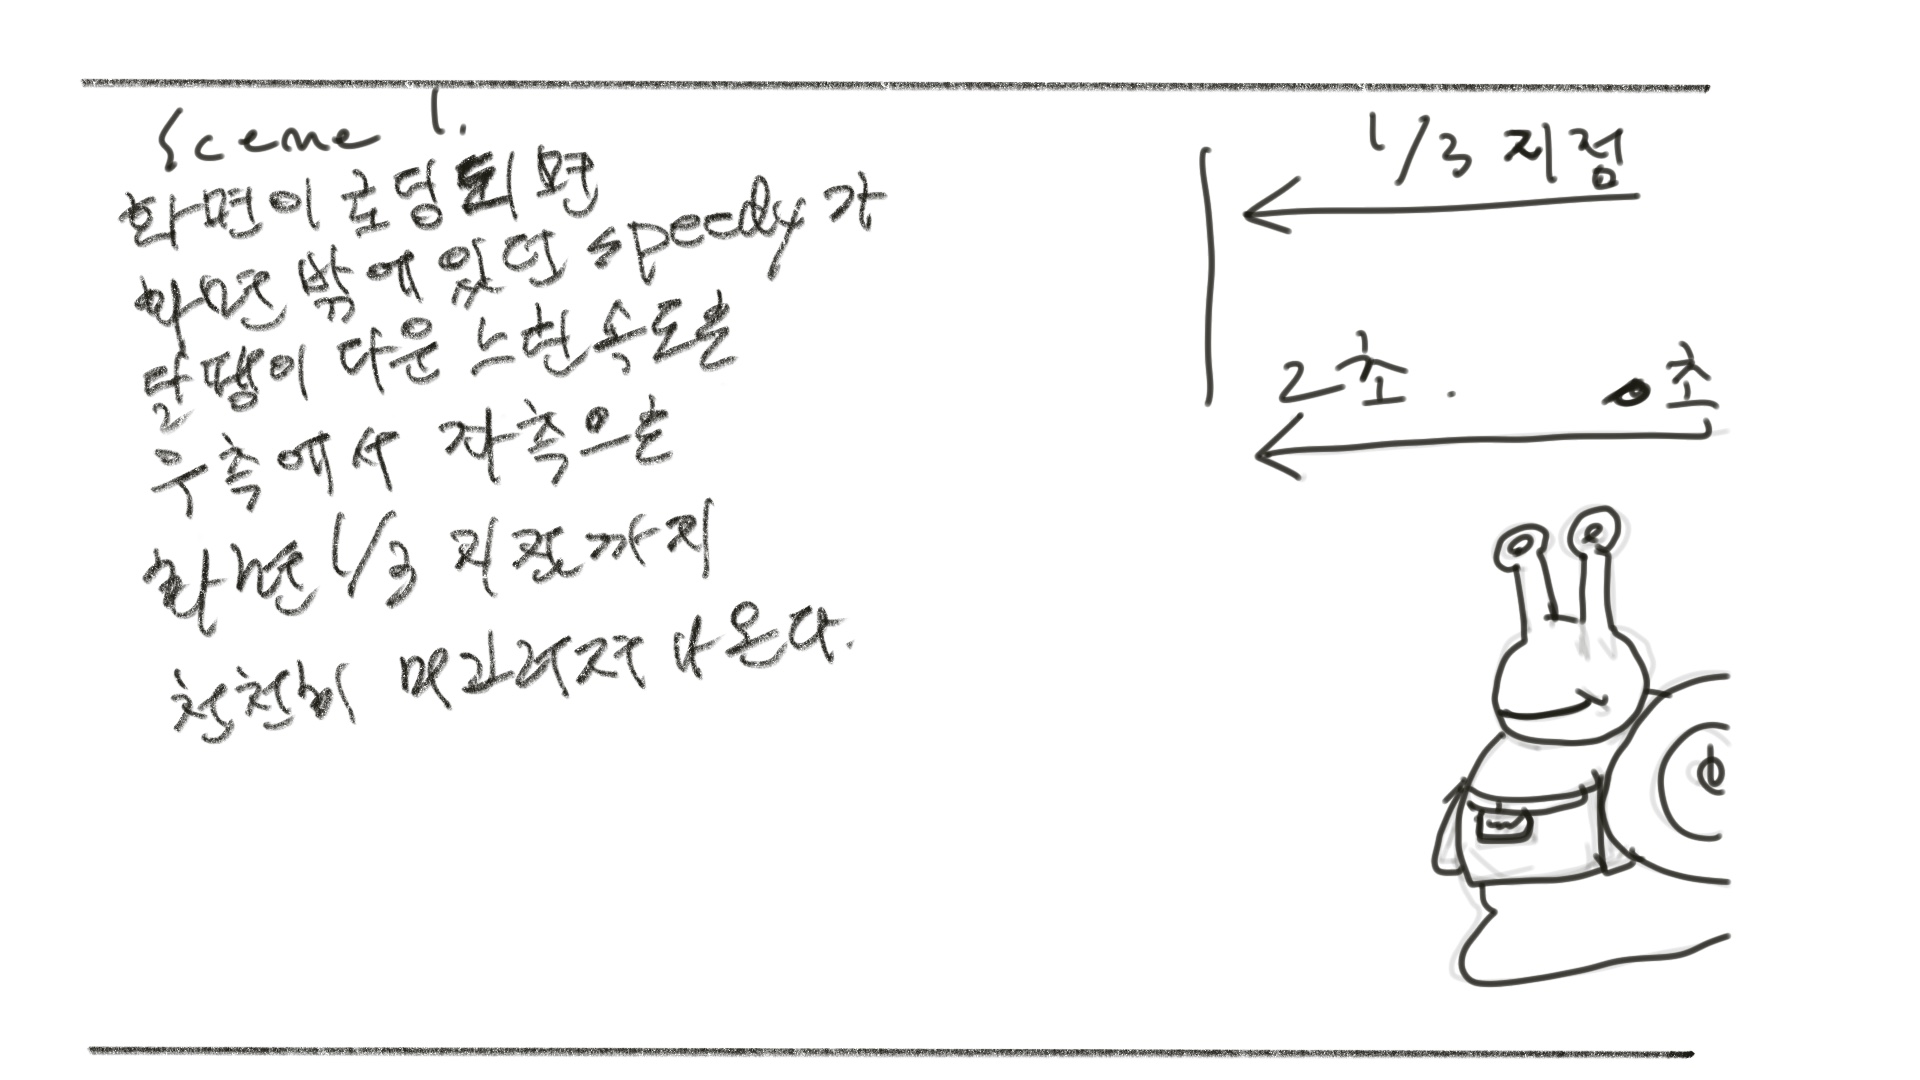 Scene 1.
화면이 로딩되면
화면 밖에 있던 speedy가
달팽이 다운 느린 속도로
우측에서 좌측으로
화면 1/3 지점까지
천천히 미끄러져 나온다.
1/3 지점
2초. 0초